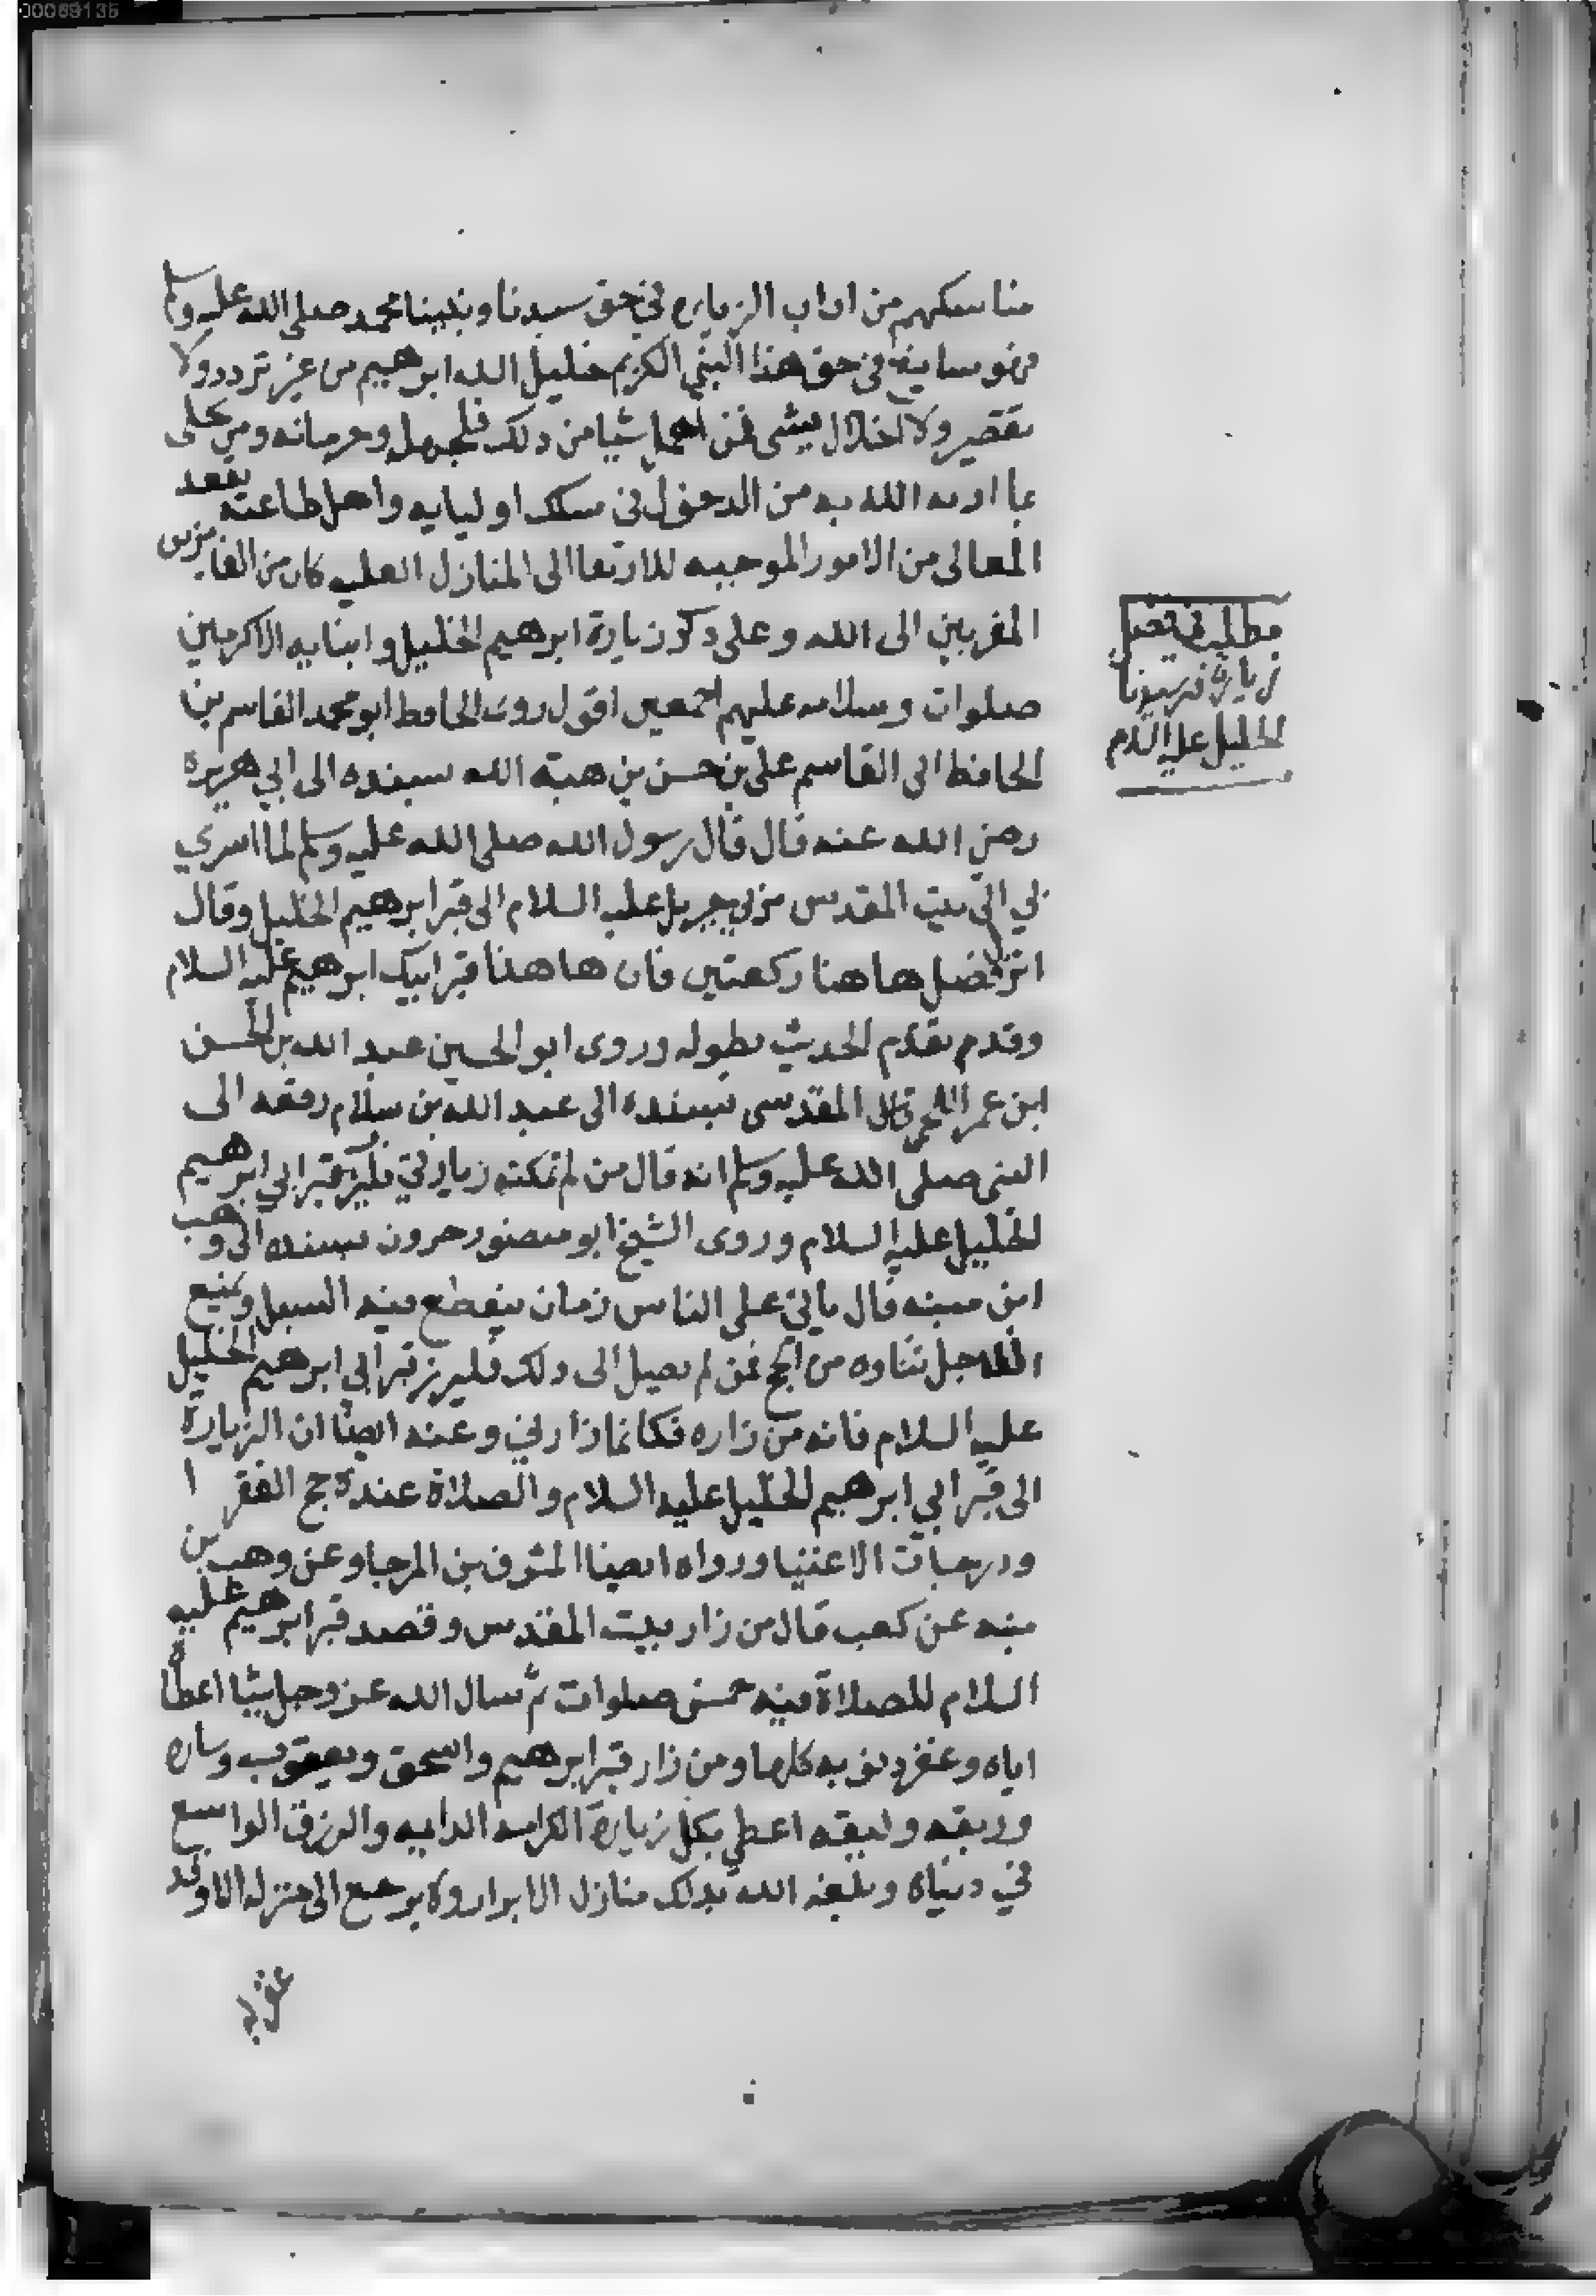 مناسكهم من اداب الزياره في حق سيدنا ونبينا محمد صلى الله عليه وسلم
فهو سايغ في حق هذا النبي الكريم خليل الله ابرهيم من غير تردد ولا
تقصير ولا اخلال بشى فمن اهمل شيا من ذلك فلجهله وحرمانه ومن تحلى
بما ادبه الله به من الدخول في سلك اوليايه واهل طاعته بقصد
المعالى من الامور الموجبه للارتقا الى المنازل العليه كان من الفايزين
المقربين الى الله وعلى ذكر زيارة ابرهيم الخليل وابنايه الاكرمين
صلوات وسلامه عليهم اجمعين اقول روى الحافظ ابو محمد القاسم بن
الحافظ ابى القاسم على بن حسن بن هبة الله بسنده الى ابي هريرة
رضي الله عنه قال قال رسول الله صلى الله عليه وسلم لما اسري
بي الى بيت المقدس مر بي جبريل عليه السلام الى قبر ابرهيم الخليل وقال
انزل فصل هاهنا ركعتين فان هاهنا قبر ابيك ابرهيم عليه السلام
وقد م تقدم الحديث بطوله وروى ابو الحسين عبد الله بن الحسن
ابن عمر المقدسى بسنده الى عبد الله بن سلام رفعه الى
النبى صلى الله عليه وسلم انه قال من لم تمكنه زيارتي فليزر قبر ابي ابرهيم
الخليل عليه السلام وروى الشيخ ابو منصور حرون بسنده الى وهب
ابن منبه قال ياتي على الناس زمان ينقطع فيه السبل ويمنع
الله جل ثناوه من الحج فمن لم يصل الى ذلك فليرز قبر ابي ابرهيم الخليل
عليه السلام فانه من زاره فكانما زارني وعنه ايضا ان الزيارة
الى قبر ابي ابرهيم الخليل عليه السلام والصلاة عنده حج الفقرا
ودرجات الاغنيا ورواه ايضا المشرف بن المرجا وعن وهب بن
منبه عن كعب قال من زار بيت المقدس وقصد قبر ابرهيم عليه
السلام للصلاة فيه خمس صلوات ثم سال الله عز وجل شيا اعطا
اياه وغفر ذنوبه كلها ومن زار قبر ابرهيم واسحق ويعقوب وساره
وربقه وليقه اعطي بكل زيارة الكرامه الدايمه والرزق الواسع
في دنياه وبلغه الله بذلك منازل الابرار ولا يرجع الى منزله الا وقد
غفر له
مطلب في فضل
زيارة قبر سيدنا
الخليل عليه السلام